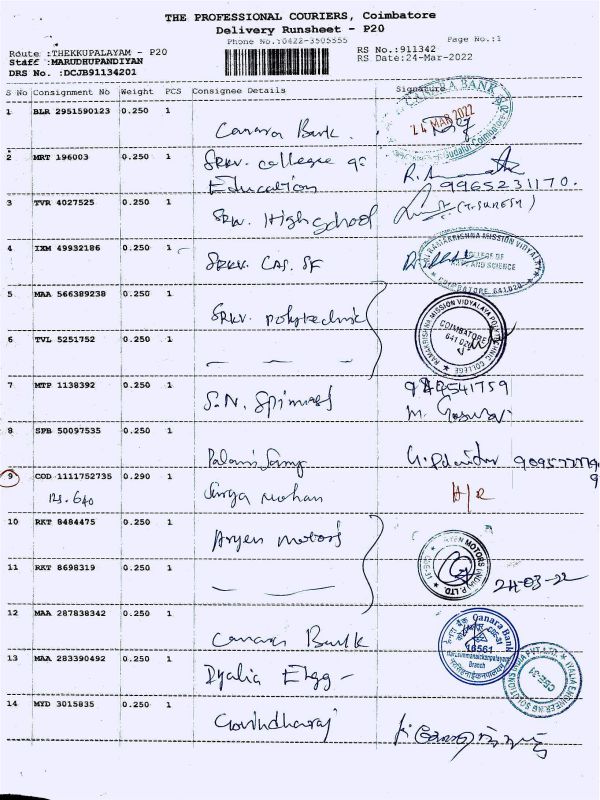 THE PROFESSIONAL COURIERS, Coimbatore
Delivery Runsheet - P20
Phone No.:0422-3505555
Page No.:1
Route :THEKKUPALAYAM - P20
RS No.:911342
Staff :MARUDHUPANDIYAN
RS Date:24-Mar-2022
DRS No. :DCJB91134201
S No Consignment No Weight PCS Consignee Details Signature
1 BLR 2951590123 0.250 1
Canara Bank.
CANARA BANK
24 MAR 2022
2 MRT 196003 0.250 1
SRKV. college of
Education
9965231170.
3 TVR 4027525 0.250 1
SRKV. High school
(T. SURESH)
4 IXM 49932186 0.250 1
SRKV. CAS. SF
SRI RAMAKRISHNA MISSION VIDYALAYA
COLLEGE OF
ARTS AND SCIENCE
COIMBATORE 641 020
5 MAA 566389238 0.250 1
SRKV. Polytechnic
RAMAKRISHNA MISSION VIDYALAYA POLYTECHNIC COLLEGE
COIMBATORE
641 020
6 TVL 5251752 0.250 1
7 MTP 1138392 0.250 1
S.N.
8 SPB 50097535 0.250 1
9 COD 1111752735 0.290 1
Rs. 640
Surya Mohan
H/R
10 RKT 8484475 0.250 1
Aryen Motors
11 RKT 8698319 0.250 1
MOTORS INDIA P. LTD.
24-03-22
12 MAA 287838342 0.250 1
Canara Bank
Canara Bank
16561
Branch
13 MAA 283390492 0.250 1
ENGINEERING SOLUTIONS INDIA PVT LTD
CBE-31
14 MYD 3015835 0.250 1
Govindharaj